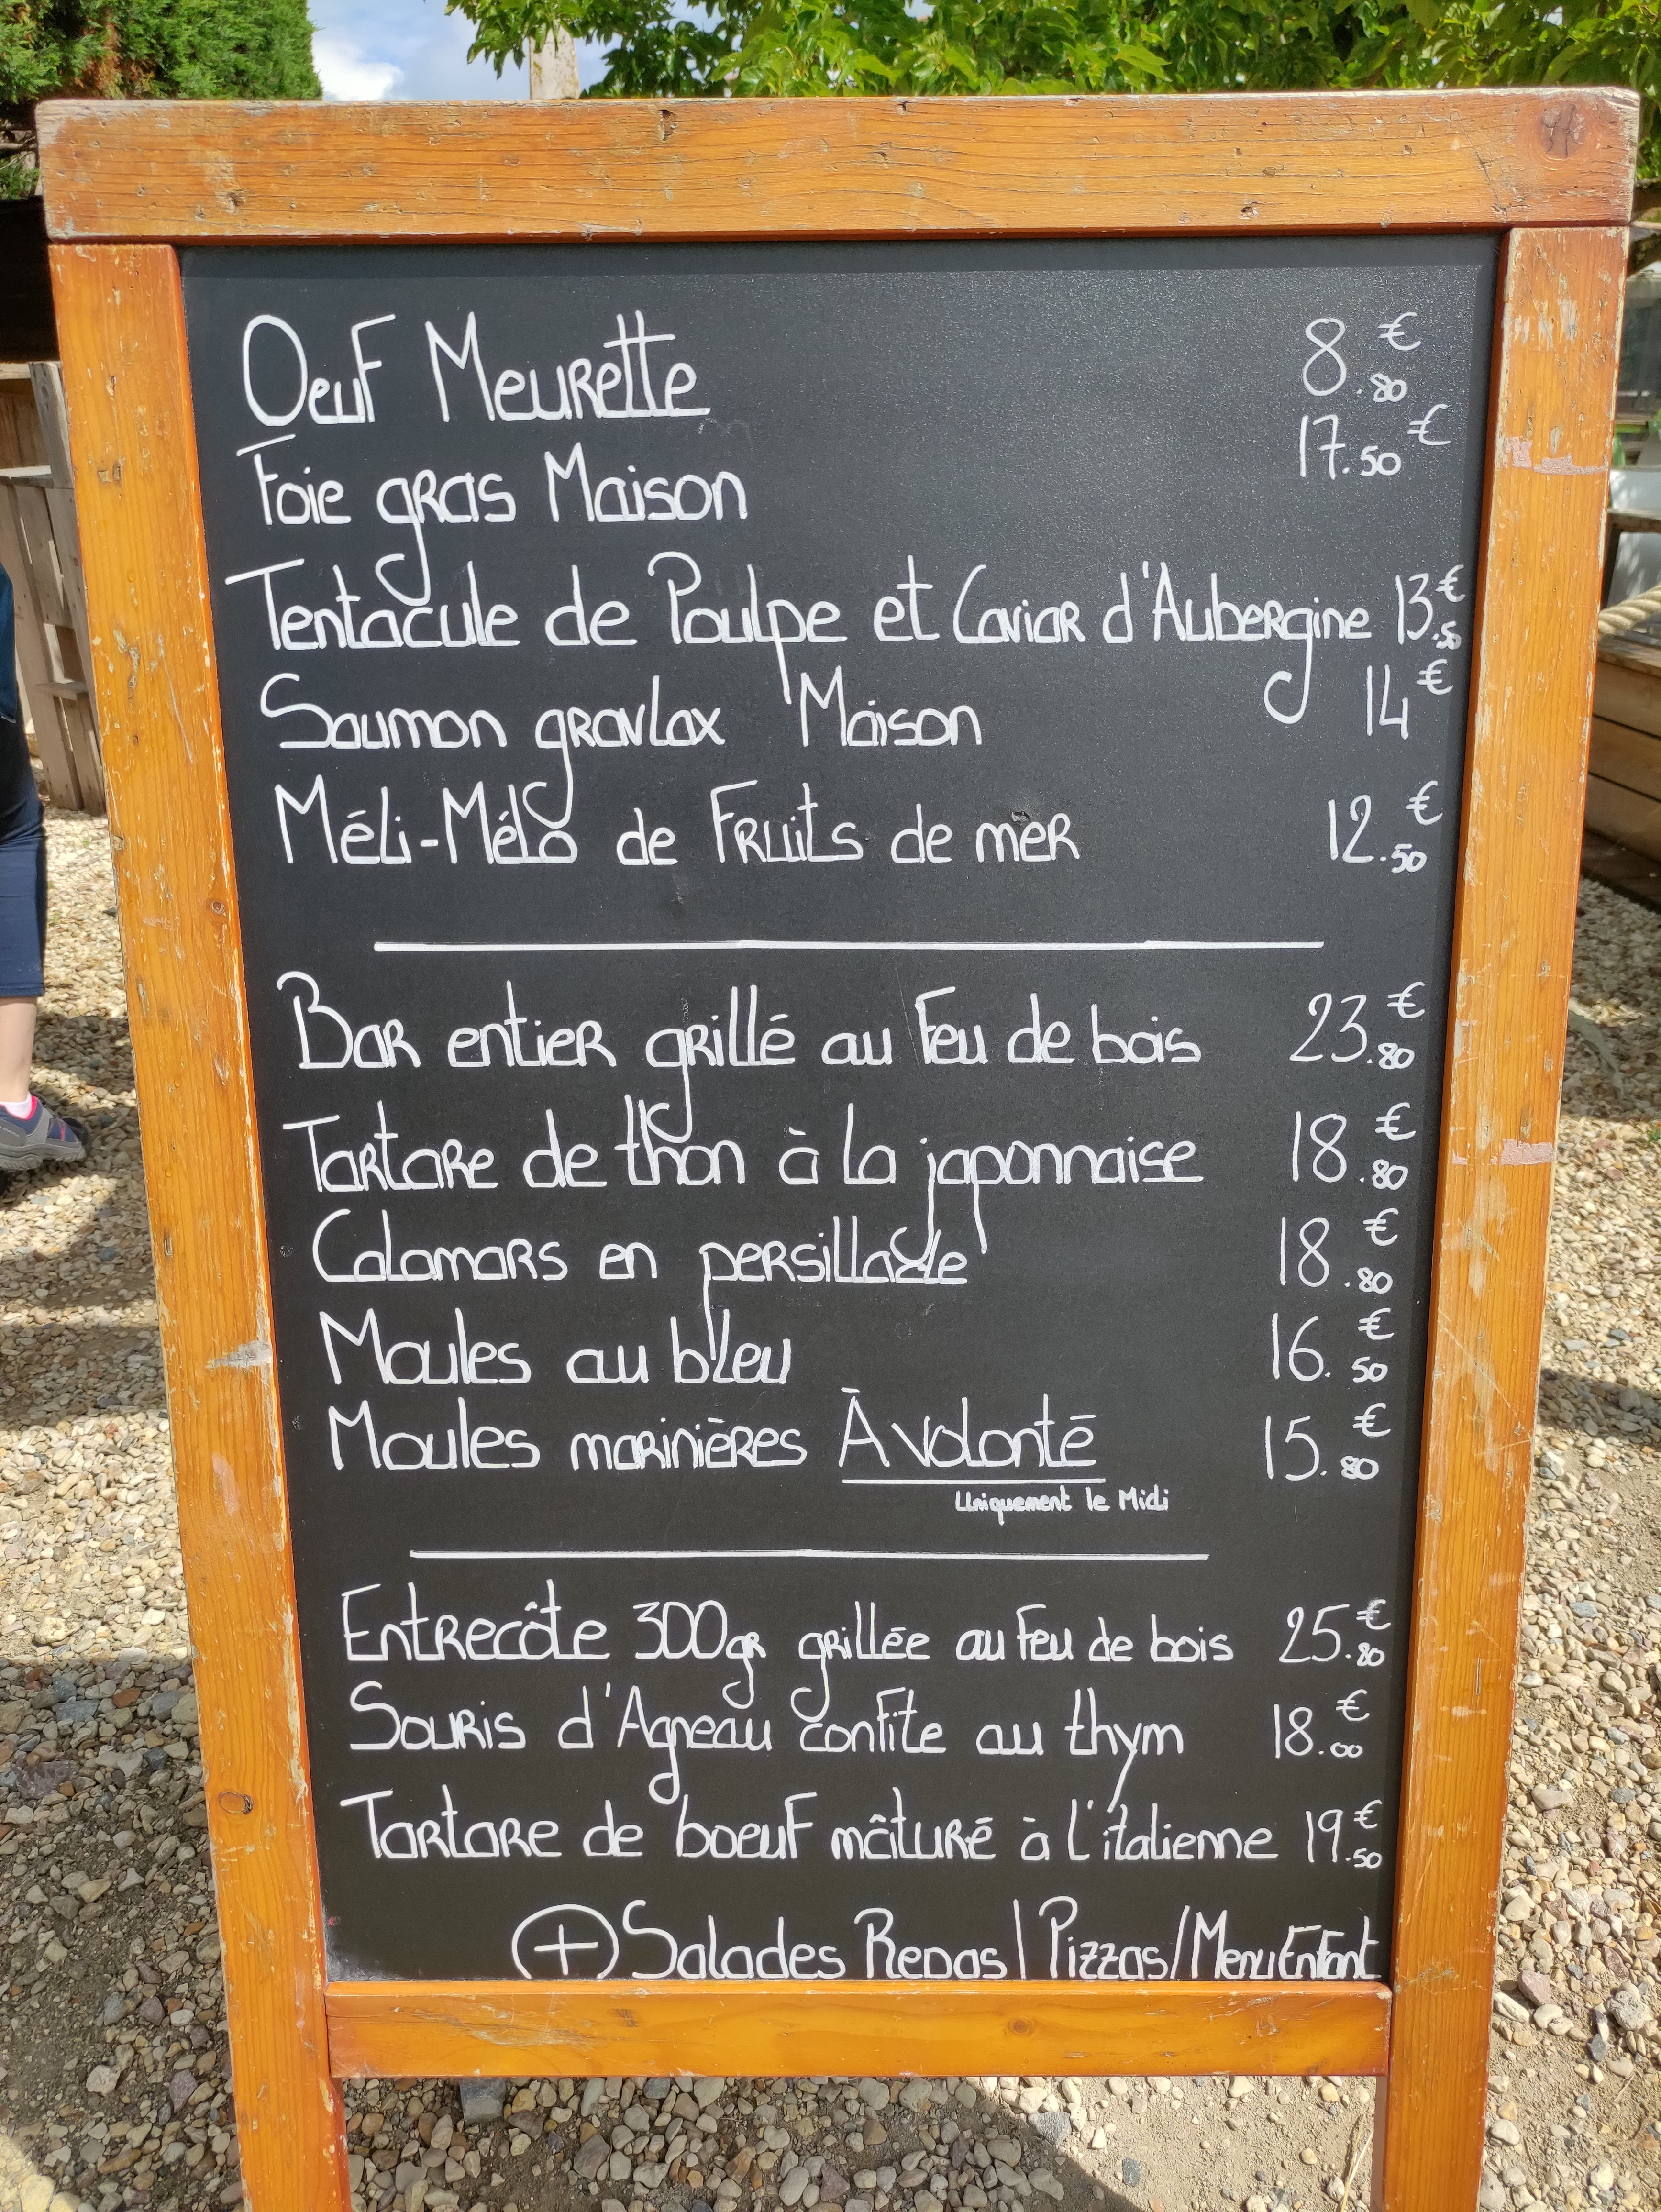 Oeuf Meurette 8.80€
Foie gras Maison 17.50€
Tentacule de Poulpe et Caviar d'Aubergine 13.50€
Saumon gravlax Maison 14€
Méli-Mélo de Fruits de mer 12.50€
Bar entier grillé au feu de bois 23.80€
Tartare de thon à la japonnaise 18.80€
Calamars en persillade 18.80€
Moules au bleu 16.50€
Moules marinières À volonté 15.80€
Uniquement le Midi
Entrecôte 300gr grillée au feu de bois 25.80€
Souris d'Agneau confite au thym 18.00€
Tartare de boeuf mâturé à l'italienne 19.50€
+ Salades Repas / Pizzas / Menu Enfant